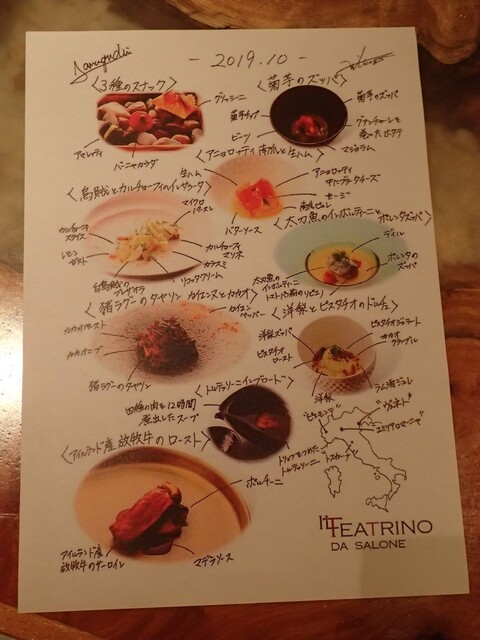 - 2019.10 -
〈3種のスナック〉
グリッシーニ
アマレッティ
バーニャカウダ
〈菊芋のズッパ〉
菊芋チップ
菊芋のズッパ
ビーツ
グアンチャーレを
巻いたホタテ
マジョラム
〈アニョロッティ 南瓜と生ハム〉
生ハム
アニョロッティ
セージ
南瓜ピュレ
バターソース
〈烏賊とカルチョーフィのインサラータ〉
マイクロ
カルチョーフィ
スライス
カルチョーフィ
マリネ
レモン
カラスミ
リコッタクリーム
白烏賊の
〈太刀魚のインボルティーニとポレンタズッパ〉
ディル
ポレンタ
のズッパ
太刀魚の
インボルティーニ
〈猪ラグーのタヤリン カイエンヌとカカオ〉
カイエン
ペッパー
カカオペースト
カカオニブ
猪ラグーのタヤリン
〈洋梨とピスタチオのドルチェ〉
洋梨ズッパ
ピスタチオジェラート
ピスタチオ
ロースト
カカオ
クランブル
洋梨
ラム酒ジュレ
〈トルテッリーニ インブロード〉
四種の肉を12時間
煮出したスープ
トルテッリーニ
〈アイルランド産放牧牛のロースト〉
ポルチーニ
アイルランド産
放牧牛のサーロイン
マデラソース
"ピエモンテ"
"ヴェネト"
"エミリアロマーニャ"
"トスカーナ"
il TEATRINO
DA SALONE